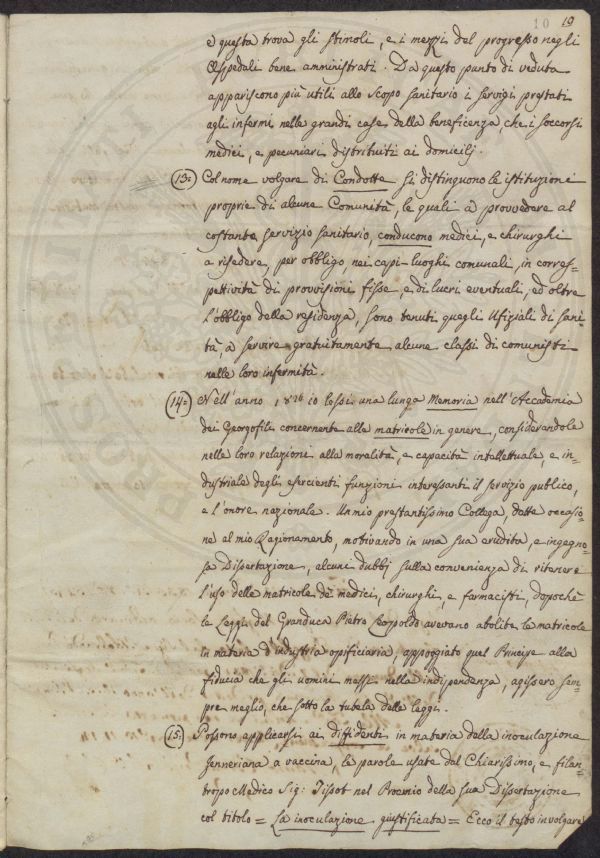 10 19
e questa trova gli stimoli, e i mezzi del progresso negli
Ospedali bene amministrati. Da questo punto di veduta
appariscono più utili allo scopo sanitario i servigi prestati
agli infermi nelle grandi case della beneficenza, che i soccorsi
medici, e pecuniarj distribuiti ai domicilj.
13: Col nome volgare di Condotte si distinguono le istituzioni
proprie di alcune Comunità, le quali a provvedere al
costante servizio sanitario, conducono medici, e chirurghi
a risedere, per obbligo, nei capi-luoghi comunali, in corres=
pettività di provvisioni fisse, e di lucri eventuali, ed oltre
l'obbligo della residenza, sono tenuti quegli Ufiziali di sani=
tà, a servire gratuitamente alcune classi di comunisti
nelle loro infermità.
14: Nell'anno 1826 io lessi una lunga Memoria nell'Accademia
dei Georgofili concernente alle matricole in genere, considerandole
nelle loro relazioni alla moralità, e capacità intellettuale, e in=
dustriale degli esercienti funzioni interessanti il servizio pubblico,
e l'onore nazionale. Un mio prestantissimo Collega, dette occasio=
ne al mio Ragionamento, motivando in una sua erudita, e ingegno=
sa Dissertazione, alcuni dubbj sulla convenienza di ritenere
l'uso delle matricole de' medici, chirurghi, e farmacisti, dopochè
le Leggi del Granduca Pietro Leopoldo avevano abolite le matricole
in materia d'industria opificiaria, appoggiato quel Principe alla
fiducia che gli uomini messi nella indipendenza, agissero sem=
pre meglio, che sotto la tutela delle leggi.
15: Possono applicarsi ai diffidenti in materia della inoculazione
Jenneriana a vaccina, le parole usate dal Chiarissimo, e filan=
tropo Medico Sig: Tissot nel Proemio della sua Dissertazione
col titolo = La inoculazione giustificata = Ecco il testo in volgare